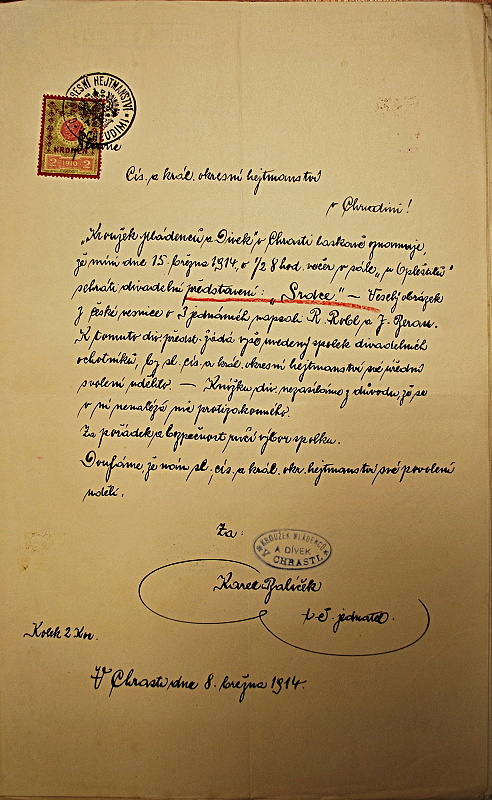 OKRESNÍ HEJTMANSTVÍ
CHRUDIMI
KRONEN
2 1910 2
Slavné
Cís. a král. okresní hejtmanství
v Chrudimi!
„Kroužek mládenců a Dívek" v Chrasti laskavě oznamuje,
že míní dne 15. března 1914, o 1/2 8 hod. večer v sále, „u Opleštilů"
sehráti divadelní představení: „Srdce" — Veselý obrázek
z české vesnice o 3 jednáních napsali R. Robl a J. Beran.
K tomuto div. předst. žádá výše uvedený spolek divadelních
ochotníků, by sl. cís. a král. okresní hejtmanství své úřední
svolení udělilo. — Knížku div. nezasíláme z důvodu, že se
v ní nenalézá nic protizákonného.
Za pořádek a bezpečnost ručí výbor spolku.
Doufáme, že nám sl. cís. a král. okr. hejtmanství své povolení
udělí.
Za:
KROUŽEK MLÁDENCŮ
A DÍVEK
V CHRASTI.
Karel Balíček
t. č. jednatel.
Kolek 2 Kor.
V Chrasti dne 8. března 1914.